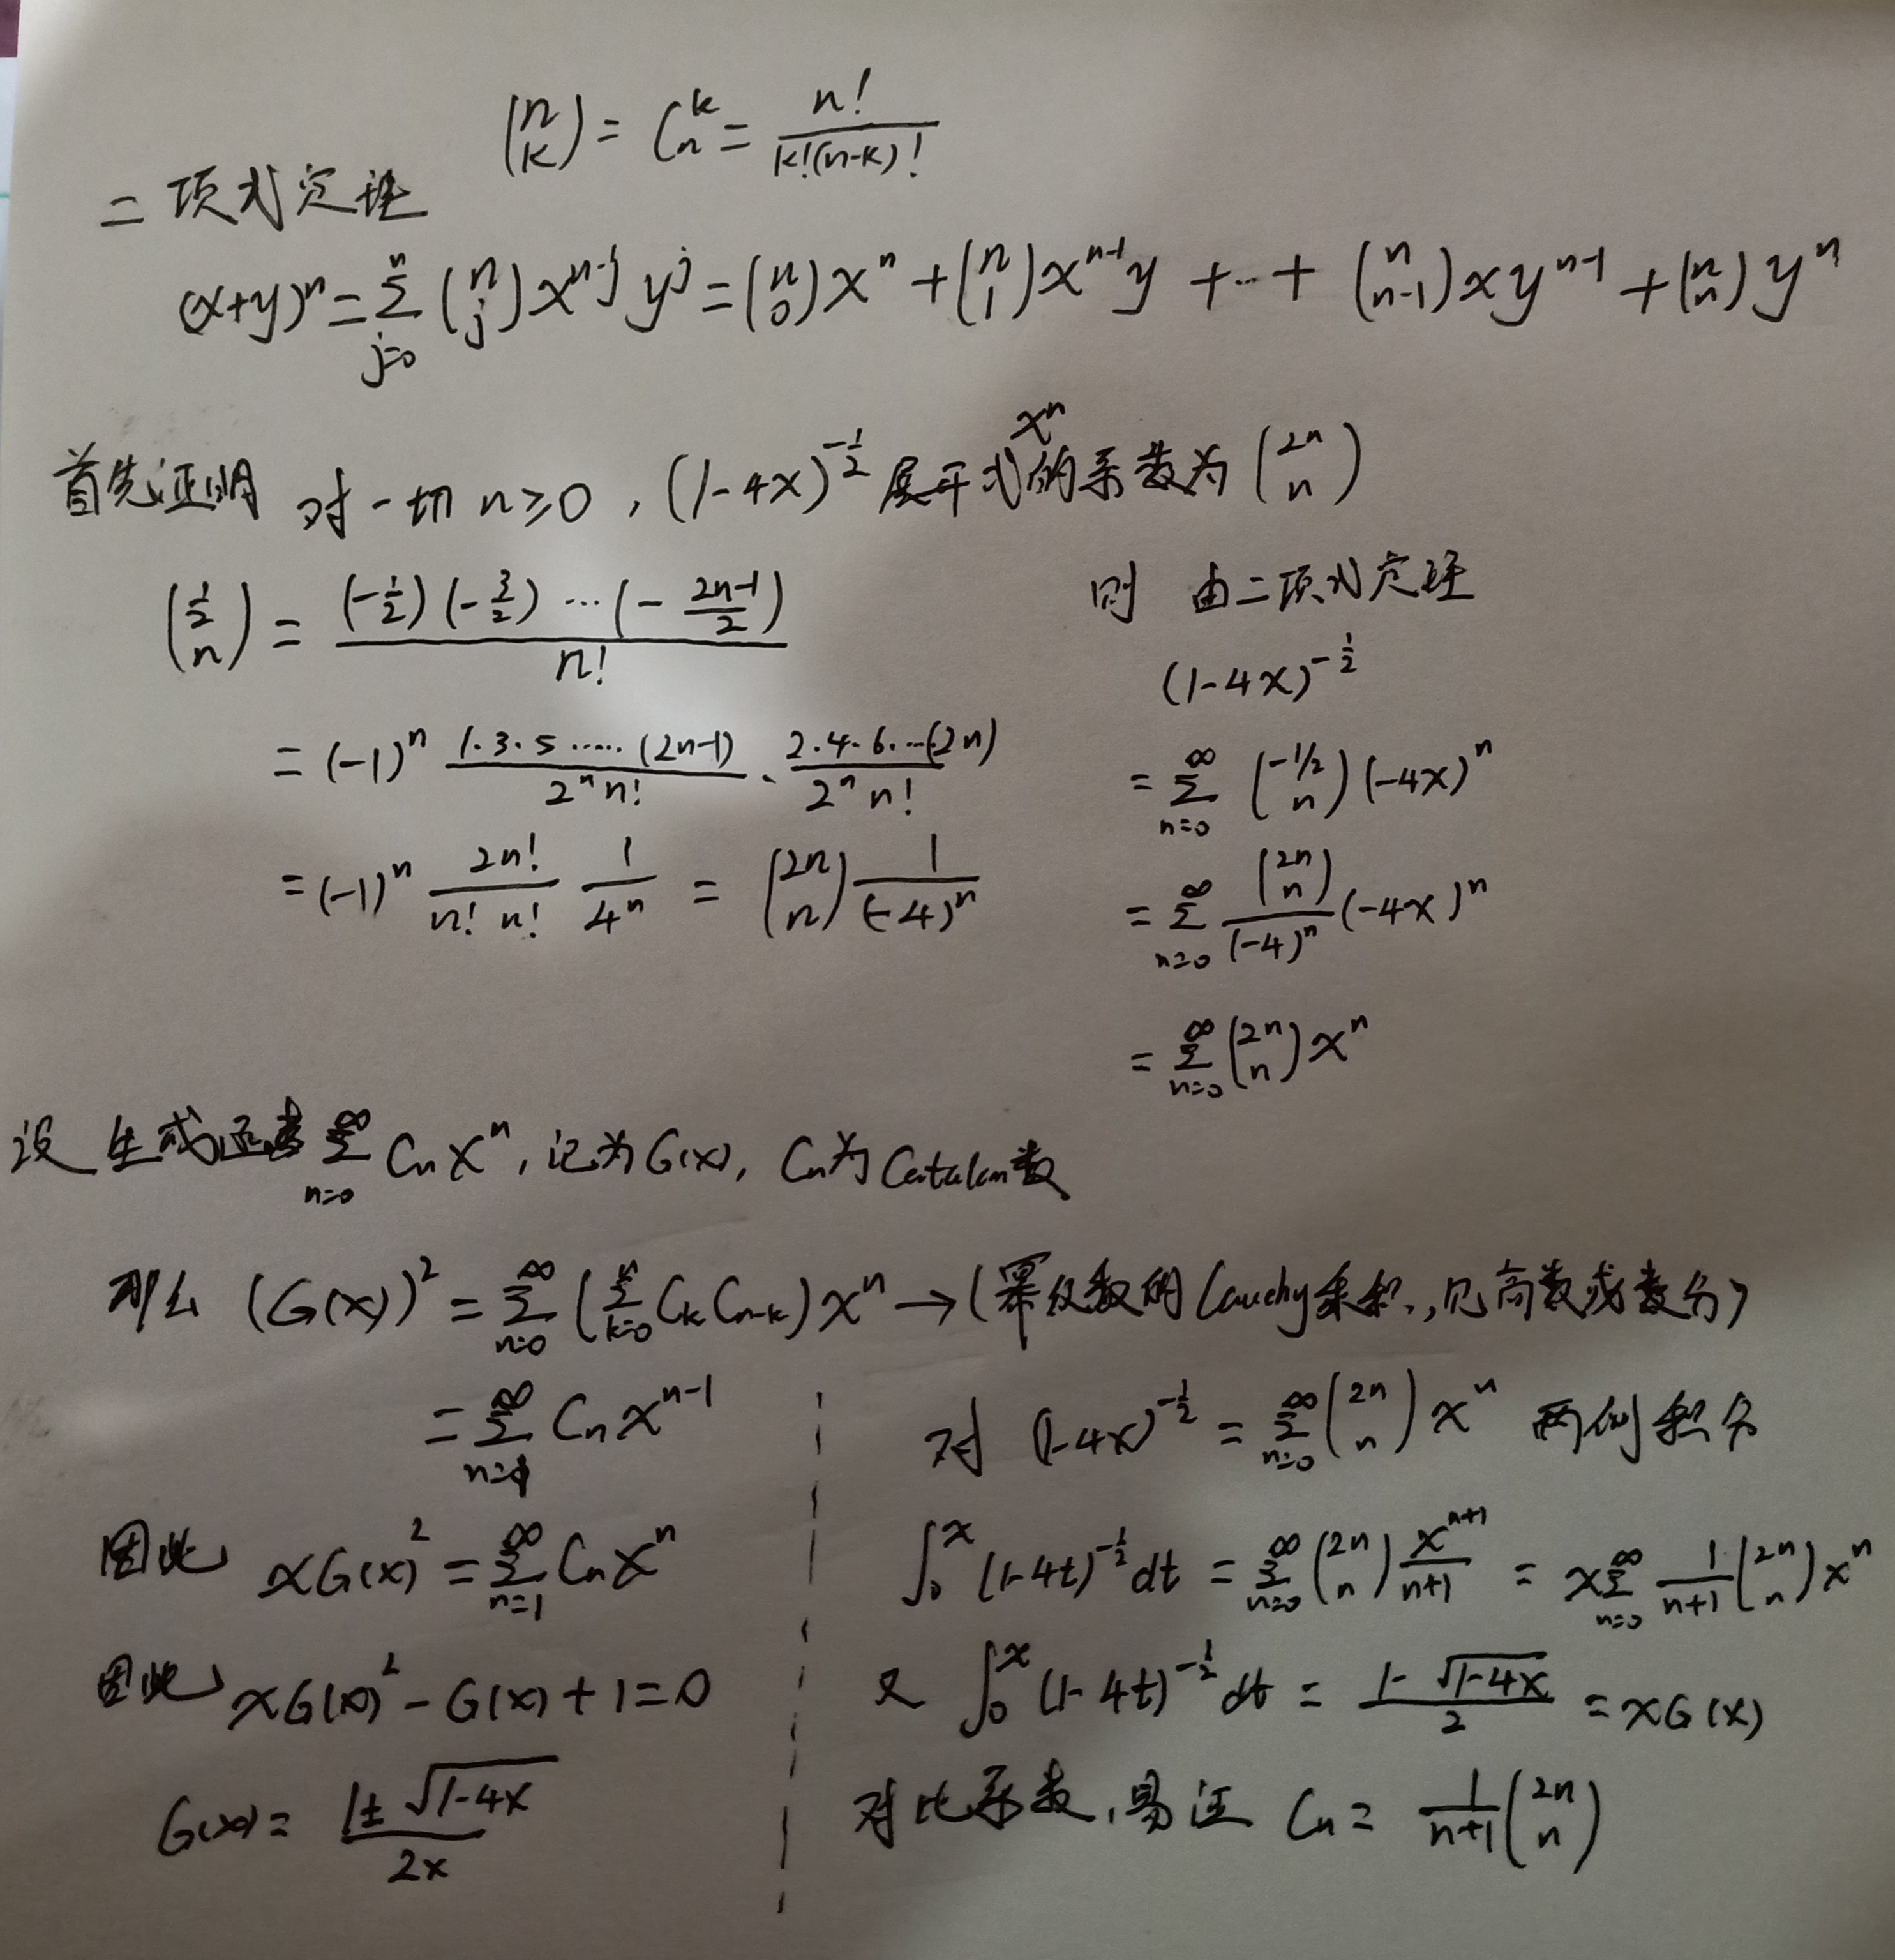 $\binom{n}{k} = C_n^k = \frac{n!}{k!(n-k)!}$
二项式定理
$(x+y)^n = \sum_{j=0}^{n} \binom{n}{j} x^{n-j} y^j = \binom{n}{0} x^n + \binom{n}{1} x^{n-1} y + \cdots + \binom{n}{n-1} x y^{n-1} + \binom{n}{n} y^n$
首先证明 对一切 $n \geq 0$, $(1-4x)^{-\frac{1}{2}}$ 展开式 $x^n$ 的系数为 $\binom{2n}{n}$
$\binom{\frac{1}{2}}{n} = \frac{(-\frac{1}{2})(-\frac{3}{2}) \cdots (-\frac{2n-1}{2})}{n!}$
$= (-1)^n \frac{1 \cdot 3 \cdot 5 \cdots (2n-1)}{2^n n!} \cdot \frac{2 \cdot 4 \cdot 6 \cdots (2n)}{2^n n!}$
$= (-1)^n \frac{2n!}{n! \, n!} \frac{1}{4^n} = \binom{2n}{n} \frac{1}{(-4)^n}$
则 由二项式定理
$(1-4x)^{-\frac{1}{2}}$
$= \sum_{n=0}^{\infty} \binom{-1/2}{n} (-4x)^n$
$= \sum_{n=0}^{\infty} \frac{\binom{2n}{n}}{(-4)^n} (-4x)^n$
$= \sum_{n=0}^{\infty} \binom{2n}{n} x^n$
设 生成函数 $\sum_{n=0}^{\infty} C_n x^n$, 记为 $G(x)$, $C_n$ 为 Catalan 数
那么 $(G(x))^2 = \sum_{n=0}^{\infty} (\sum_{k=0}^{n} C_k C_{n-k}) x^n \rightarrow$ (幂级数的 Cauchy 乘积, 见高数或数分)
$= \sum_{n=1}^{\infty} C_n x^{n-1}$
因此 $xG(x)^2 = \sum_{n=1}^{\infty} C_n x^n$
因此 $xG(x)^2 - G(x) + 1 = 0$
$G(x) = \frac{1 \pm \sqrt{1-4x}}{2x}$
对 $(1-4x)^{-\frac{1}{2}} = \sum_{n=0}^{\infty} \binom{2n}{n} x^n$ 两侧积分
$\int_0^x (1-4t)^{-\frac{1}{2}} dt = \sum_{n=0}^{\infty} \binom{2n}{n} \frac{x^{n+1}}{n+1} = x \sum_{n=0}^{\infty} \frac{1}{n+1} \binom{2n}{n} x^n$
又 $\int_0^x (1-4t)^{-\frac{1}{2}} dt = \frac{1-\sqrt{1-4x}}{2} = xG(x)$
对比系数, 易证 $C_n = \frac{1}{n+1} \binom{2n}{n}$